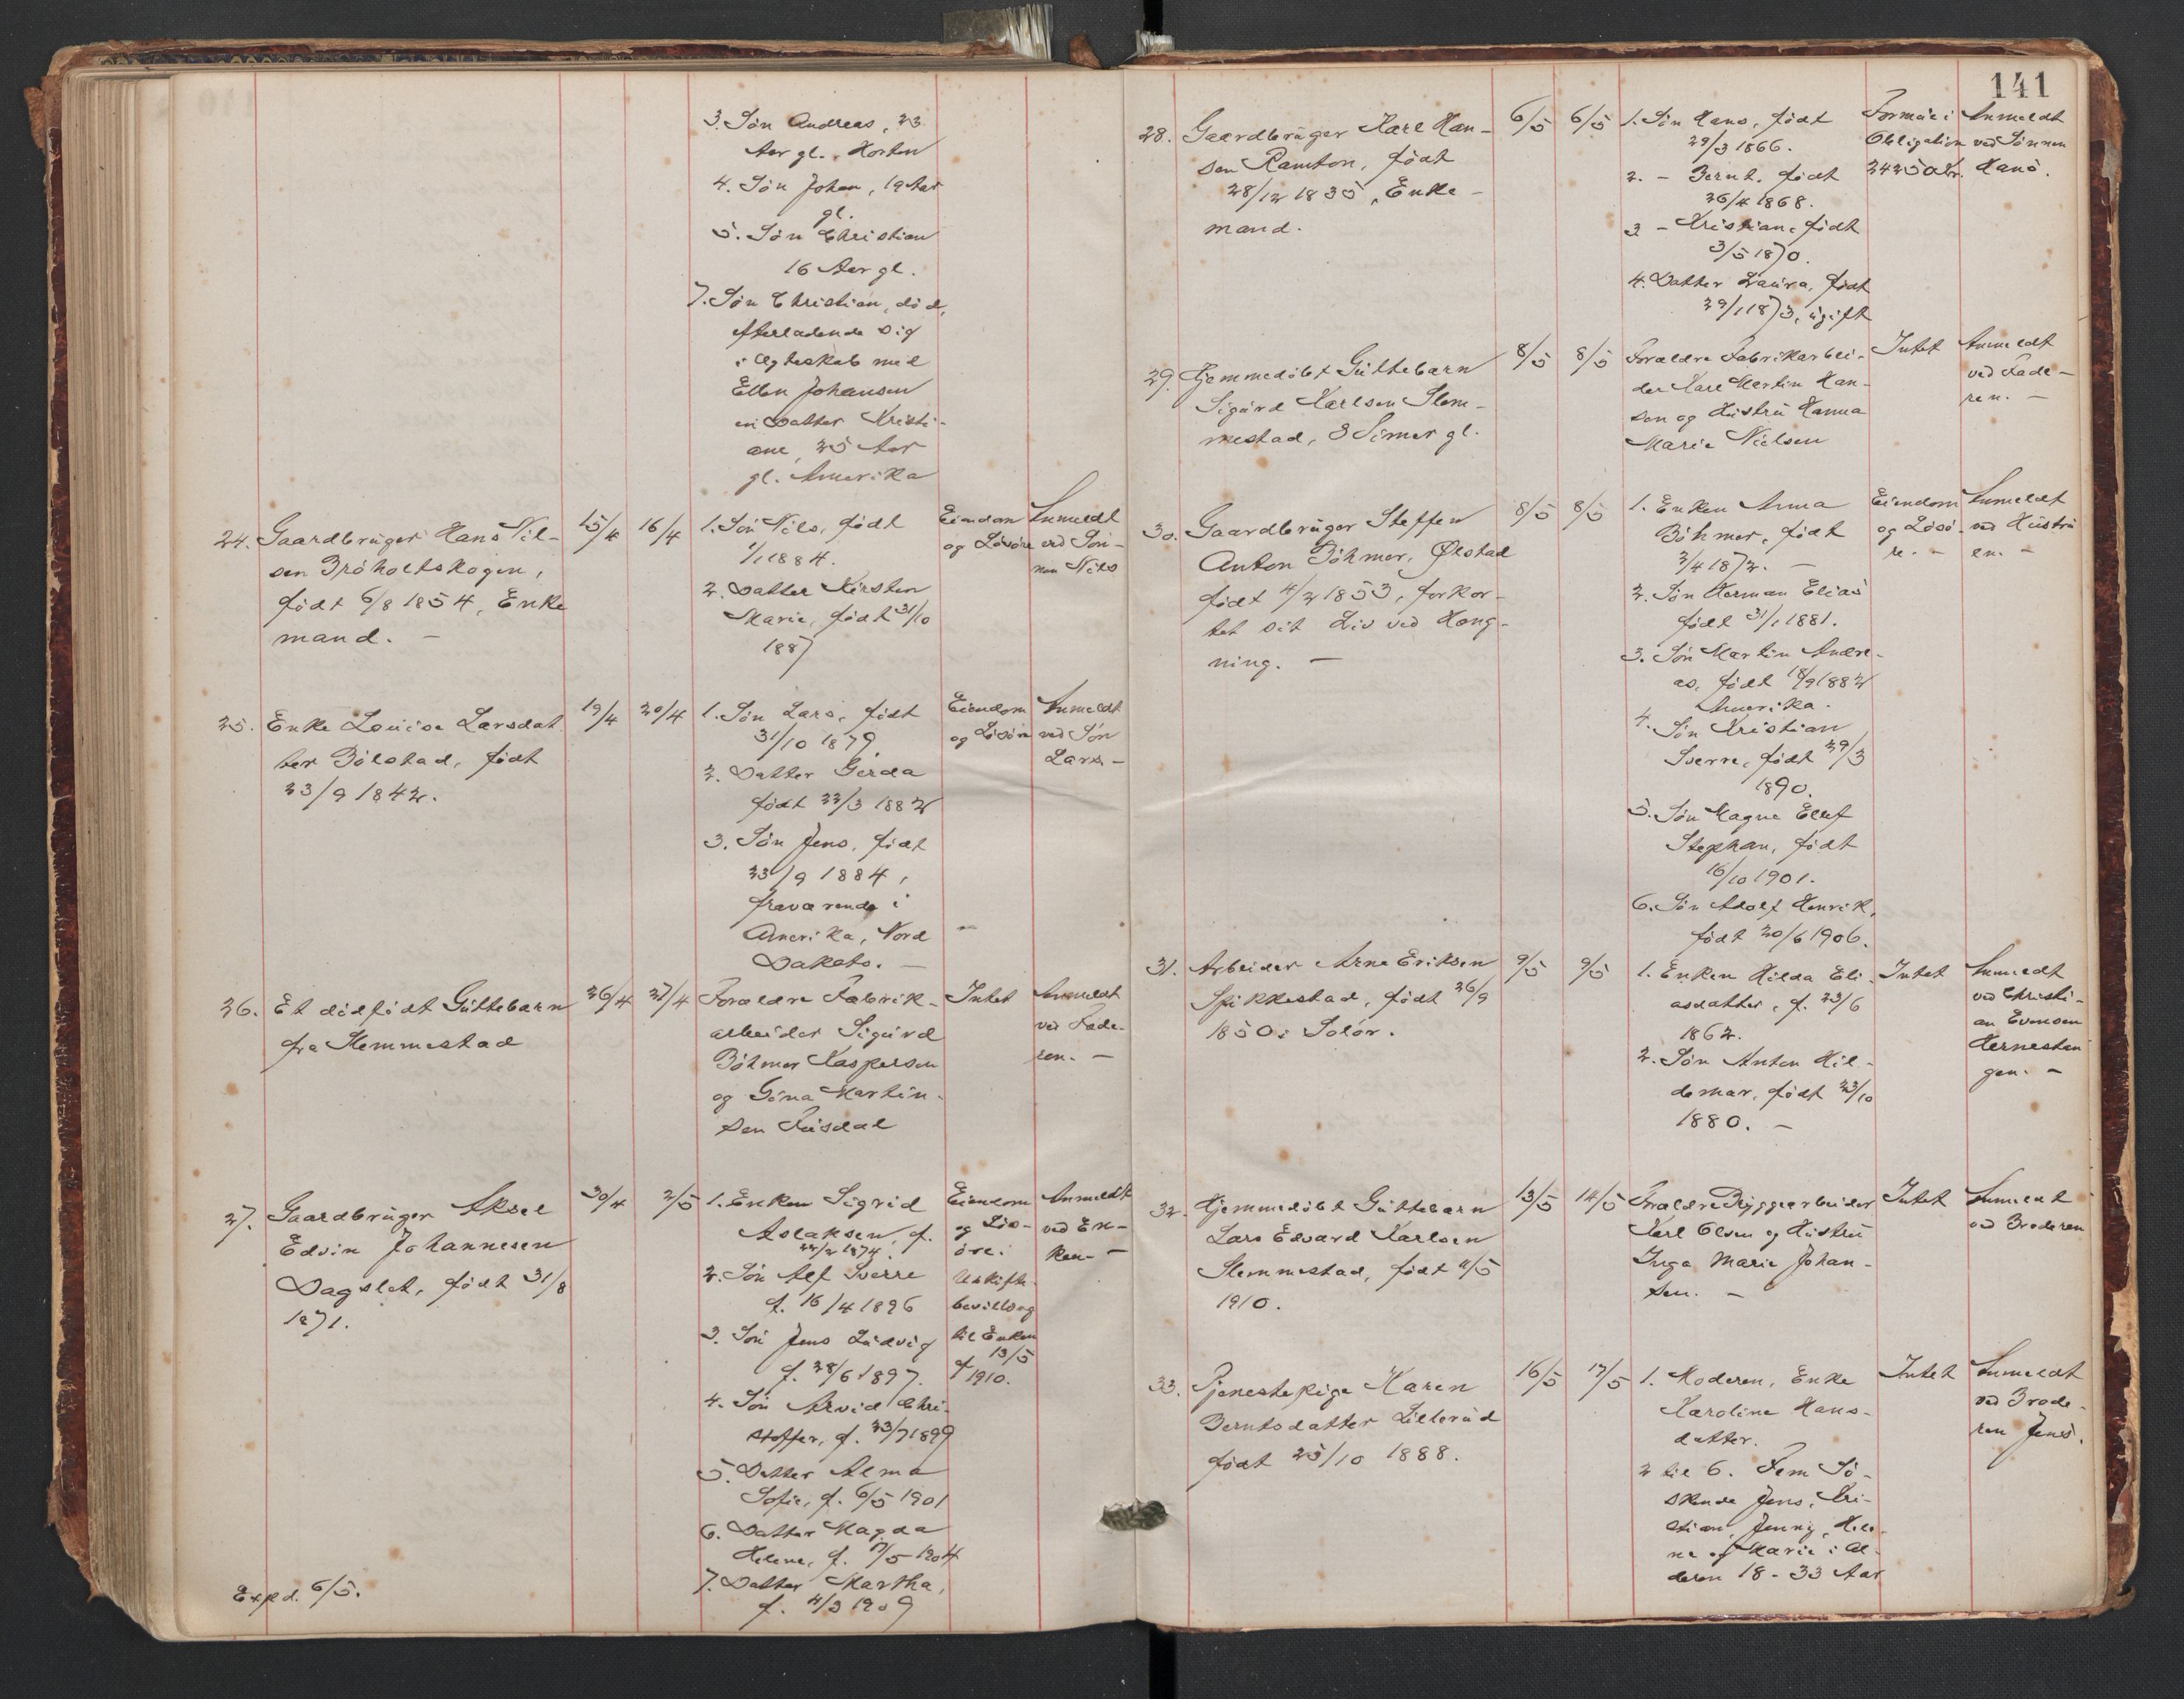 3. Søn Andreas, 23
Aar gl., Horten
4. Søn Johan, 19 Aar
gl.
5. Søn Christian
16 Aar gl.
7. Søn Christian, død,
efterladende sig
i Ægteskab med
Ellen Johansen
en Datter Kristi-
ane, 25 Aar
gl. Amerika
24. Gaardbruger Hans Nil-
sen Bråholtskogen,
født 6/8 1854, Enke
mand. -
15/4 16/4
1. Søn Nils, født
1/1 1884.
2. Datter Kirsten
Marie, født 31/10
1887
Eiendom
og Løsøre
Anmeldt
ved Søn-
nen Nils
25. Enke Louise Larsdat
ter Bølstad, født
23/9 1842.
19/4 20/4
1. Søn Lars, født
31/10 1879.
2. Datter Gerda
født 22/3 1882
3. Søn Jens, født
23/9 1884,
fraværende i
Amerika, Nord
Dakota. -
Eiendom
og Løsøre
Anmeldt
ved Søn
Lars -
26. Et dødfødt Guttebarn
fra Slemmestad
26/4 27/4
Forældre Fabrik-
arbeider Sigurd
Bøhmer Kaspersen
og Gina Martin-
sen Rusdal
Intet
Anmeldt
ved Fade-
ren. -
27. Gaardbruger Aksel
Edvin Johannesen
Dagslet, født 31/8
1871.
30/4 2/5
1. Enken Sigrid
Aslaksen, f.
22/2 1874.
2. Søn Alf Sverre
f. 16/4 1896
3. Søn Jens Ludvig
f. 28/6 1897.
4. Søn Arvid Chri-
stoffer, f. 23/7 1899
5. Datter Alma
Sofie, f. 6/5 1901
6. Datter Magda
Helene, f. 17/5 1904
7. Datter Martha,
f. 4/3 1909
Eiendom
og Løs-
øre.
Uskifte-
bevilling
til Enken
af 13/5
1910.
Anmeldt
ved En-
ken. -
Expd. 6/5.
141
28. Gaardbruger Karl Han-
sen Ramton, født
28/12 1835, Enke-
mand.
6/5 6/5
1. Søn Hans, født
29/3 1866.
2. - Bernt, født
26/4 1868.
3 - Kristian, født
3/5 1870.
4. Datter Laura, født
29/1 1873, ugift
Formue i
Obligation
Anmeldt
ved Sønnen
Hans.
29. Hjemmedøbt Guttebarn
Sigurd Karlsen Slem-
mestad, 3 Timer gl.
8/5 8/5
Forældre Fabrikarbei-
der Karl Martin Han-
sen og Hustru Hanna
Marie Nielsen
Intet
Anmeldt
ved Fade-
ren. -
30. Gaardbruger Steffen
Anton Bøhmer, Ølstad
født 4/2 1853, forkor-
tet sit Liv ved Hæng-
ning. -
8/5 8/5
1. Enken Anna
Bøhmer, født
3/4 1872. -
2. Søn Herman Elias
født 31/1 1881.
3. Søn Martin Andre-
as, født 18/9 1882
Amerika.
4. Søn Kristian
Sverre, født 29/3
1890.
5. Søn Magne Ellef
Stephan, født
16/10 1901.
6. Søn Adolf Henrik,
født 20/6 1906.
Eiendom
og Løsø-
re. -
Anmeldt
ved Hustru
en. -
31. Arbeider Arne Eriksen
Spikkestad, født 26/9
1850 i Solør.
9/5 9/5
1. Enken Hilda Eli-
asdatter, f. 23/6
1862.
2. Søn Anton Hil-
demar, født 23/10
1880. -
Intet
Anmeldt
ved Christi-
an Evensen
Hernestan
gen. -
32. Hjemmedøbt Guttebarn
Lars Edvard Karlsen
Slemmestad, født 11/5
1910.
13/5 14/5
Forældre Bryggearbeider
Karl Olsen og Hustru
Inga Marie Johan-
sen. -
Intet
Anmeldt
ved Broderen
33. Tjenestepige Karen
Berntsdatter Lillerud
født 25/10 1888.
16/5 17/5
1. Moderen, Enke
Karoline Hans-
datter.
2 til 6. Fem Sø-
skende Jens, Kri-
stian, Jenny, Hele-
ne og Marie i Al-
deren 18-33 Aar
Intet
Anmeldt
ved Brode-
ren Jens.